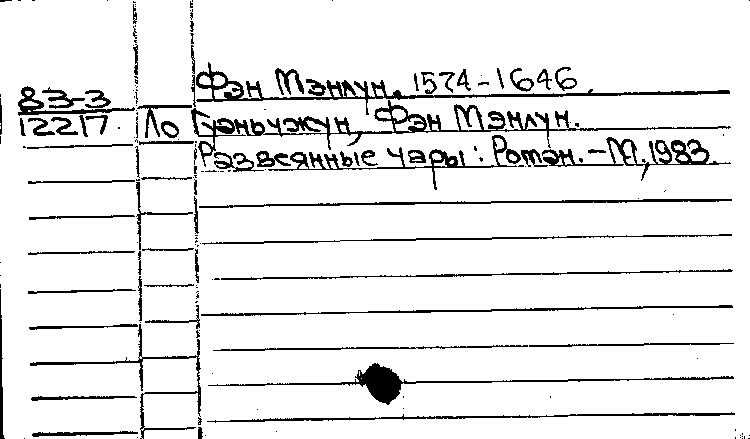 Фэн Мэнлун. 1574-1646.
83-3
12217. Ло Гуаньчжун, Фэн Мэнлун.
Развеянные чары: Роман. - М., 1983.